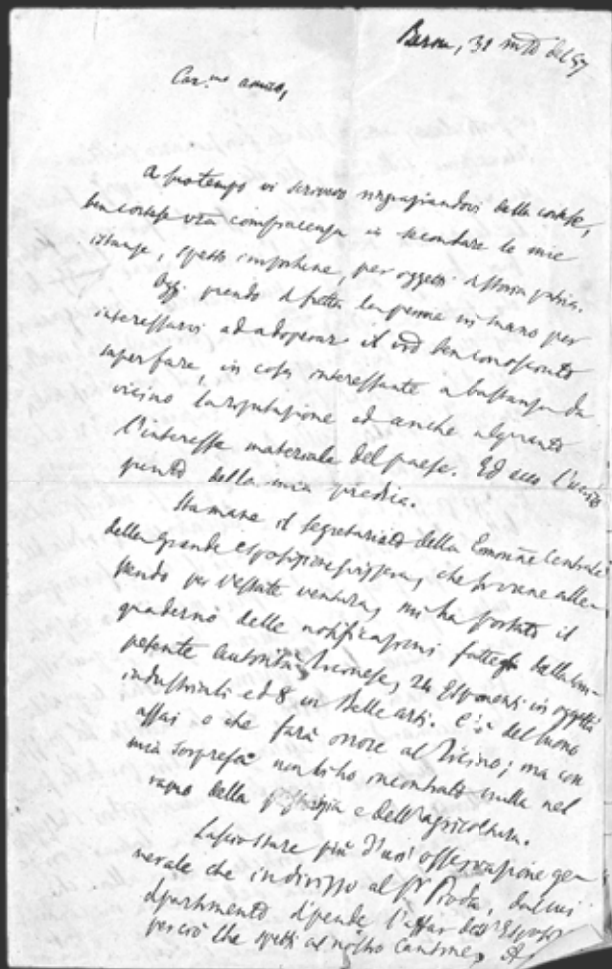 Berna, 31 del 57
Car.mo amico,
A suo tempo vi scrivevo ringraziandovi della cortese,
ben cortese vra compiacenza in secondare le mie
istanze, spesso importune, per oggetti di storia patria.
Oggi prendo in fretta la penna in mano per
interessarvi ad adoperar il vro ben conosciuto
saper fare, in cosa interessante abbastanza da
vicino la riputazione ed anche alquanto
l'interesse materiale del paese. Ed ecco l'
punto della mia predica.
Stamane il segretariato della Centrale
della grande esposizione svizzera, che si viene
per l'estate ventura, mi ha portato il
quaderno delle notificazioni fattegli dalla com-
petente autorità ticinese, 24 Esponenti in oggetti
industriali ed 8 in Belle arti. C'è del buono
assai e che farà onore al Ticino; ma con
mia sorpresa non vi ho incontrato nulla nel
ramo della e dell'agricoltura.
Lascio stare più d'un' osservazione ge-
nerale che indirizzo al Sr Pioda, dal cui
dipartimento dipende l'affar dell'Esposiz
perciò che spetta al nostro Cantone,